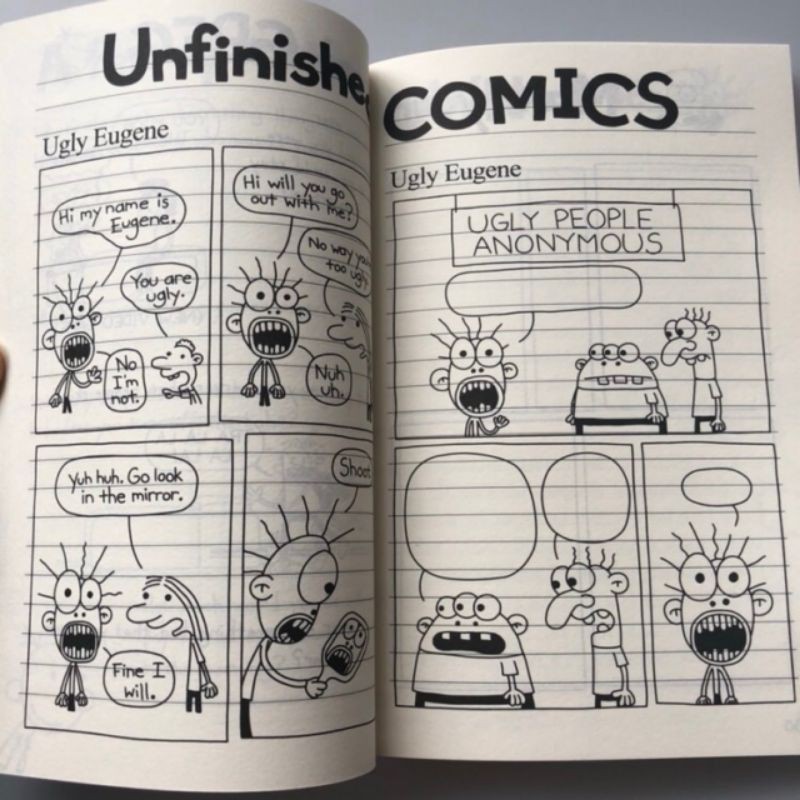 Unfinishe
COMICS
Ugly Eugene
Hi my name is
Eugene.
You are
ugly.
No
I'm
not.
Hi will you go
out with me?
No way you
too ugly
Nuh
uh.
Yuh huh. Go look
in the mirror.
Fine I
will.
Shoot
Ugly Eugene
UGLY PEOPLE
ANONYMOUS